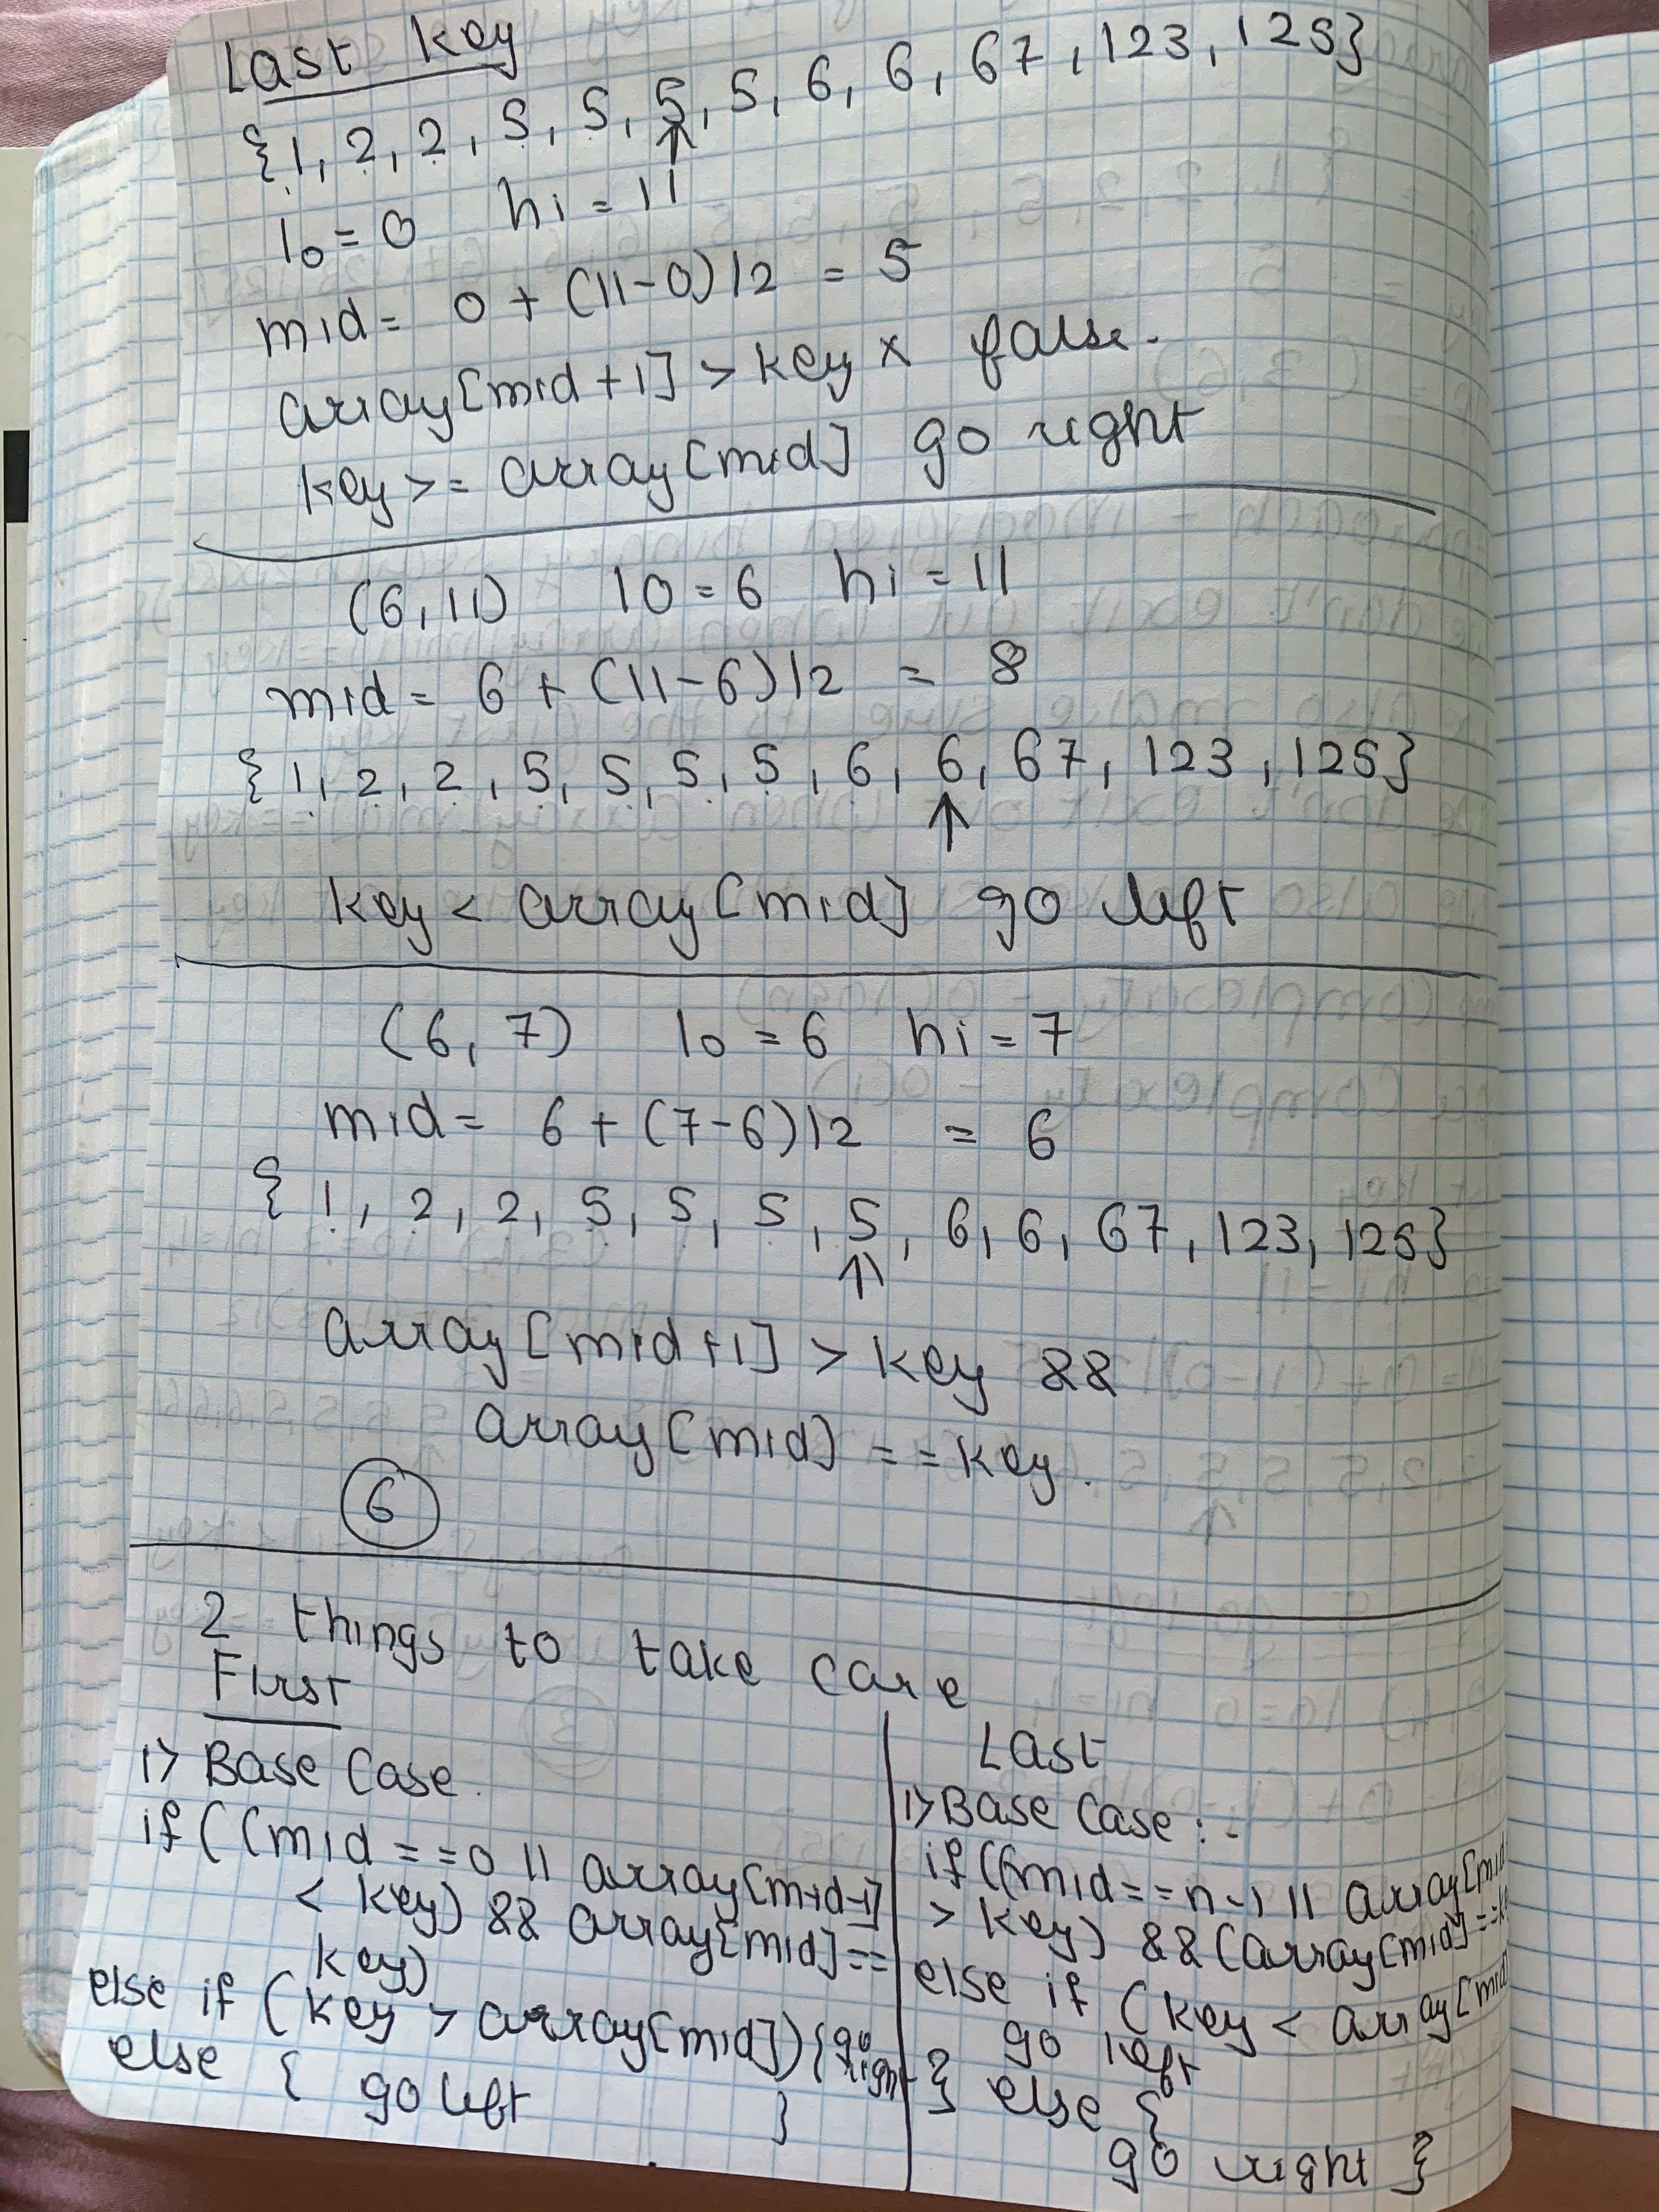 Last key
{1, 2, 2, 5, 5, 5, 5, 6, 6, 67, 123, 125}
lo = 0 hi = 11
mid = 0 + (11-0)/2 = 5
array[mid+1] > key × false.
key >= array[mid] go right
(6, 11) lo = 6 hi = 11
mid = 6 + (11-6)/2 = 8
{1, 2, 2, 5, 5, 5, 5, 6, 6, 67, 123, 125}
key < array[mid] go left
(6, 7) lo = 6 hi = 7
mid = 6 + (7-6)/2 = 6
{1, 2, 2, 5, 5, 5, 5, 6, 6, 67, 123, 125}
array[mid+1] > key &&
array[mid] == key.
6
2 things to take care
First
1> Base Case.
if((mid == 0 || array[mid-1]
< key) && array[mid] ==
key)
else if (key > array[mid]) {go
right
else { go left }
Last
1> Base Case :-
if((mid == n-1 || array[mid
> key) && (array[mid] == k
else if (key < array[mid]
go left
} else {
go right }